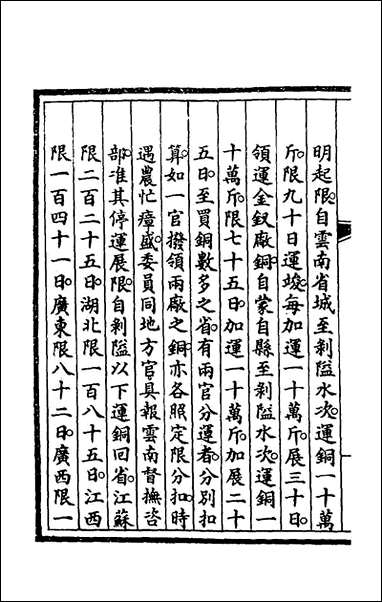 明起限。自雲南省城至剥隘水次。運銅一十萬
斤。限九十日運竣。每加運一十萬斤。展三十日。
領運金釵廠銅。自蒙自縣至剥隘水次。運銅一
十萬斤。限七十五日。加運一十萬斤。加展二十
五日。至買銅數多之省。有兩官分運者。分別扣
算。如一官撥領兩廠之銅。亦各照定限分扣。時
遇農忙瘴盛。委員同地方官具報雲南督撫咨
部。准其停運展限。自剥隘以下運銅回省。江蘇
限二百二十五日。湖北限一百八十五日。江西
限一百四十一日。廣東限八十二日。廣西限一